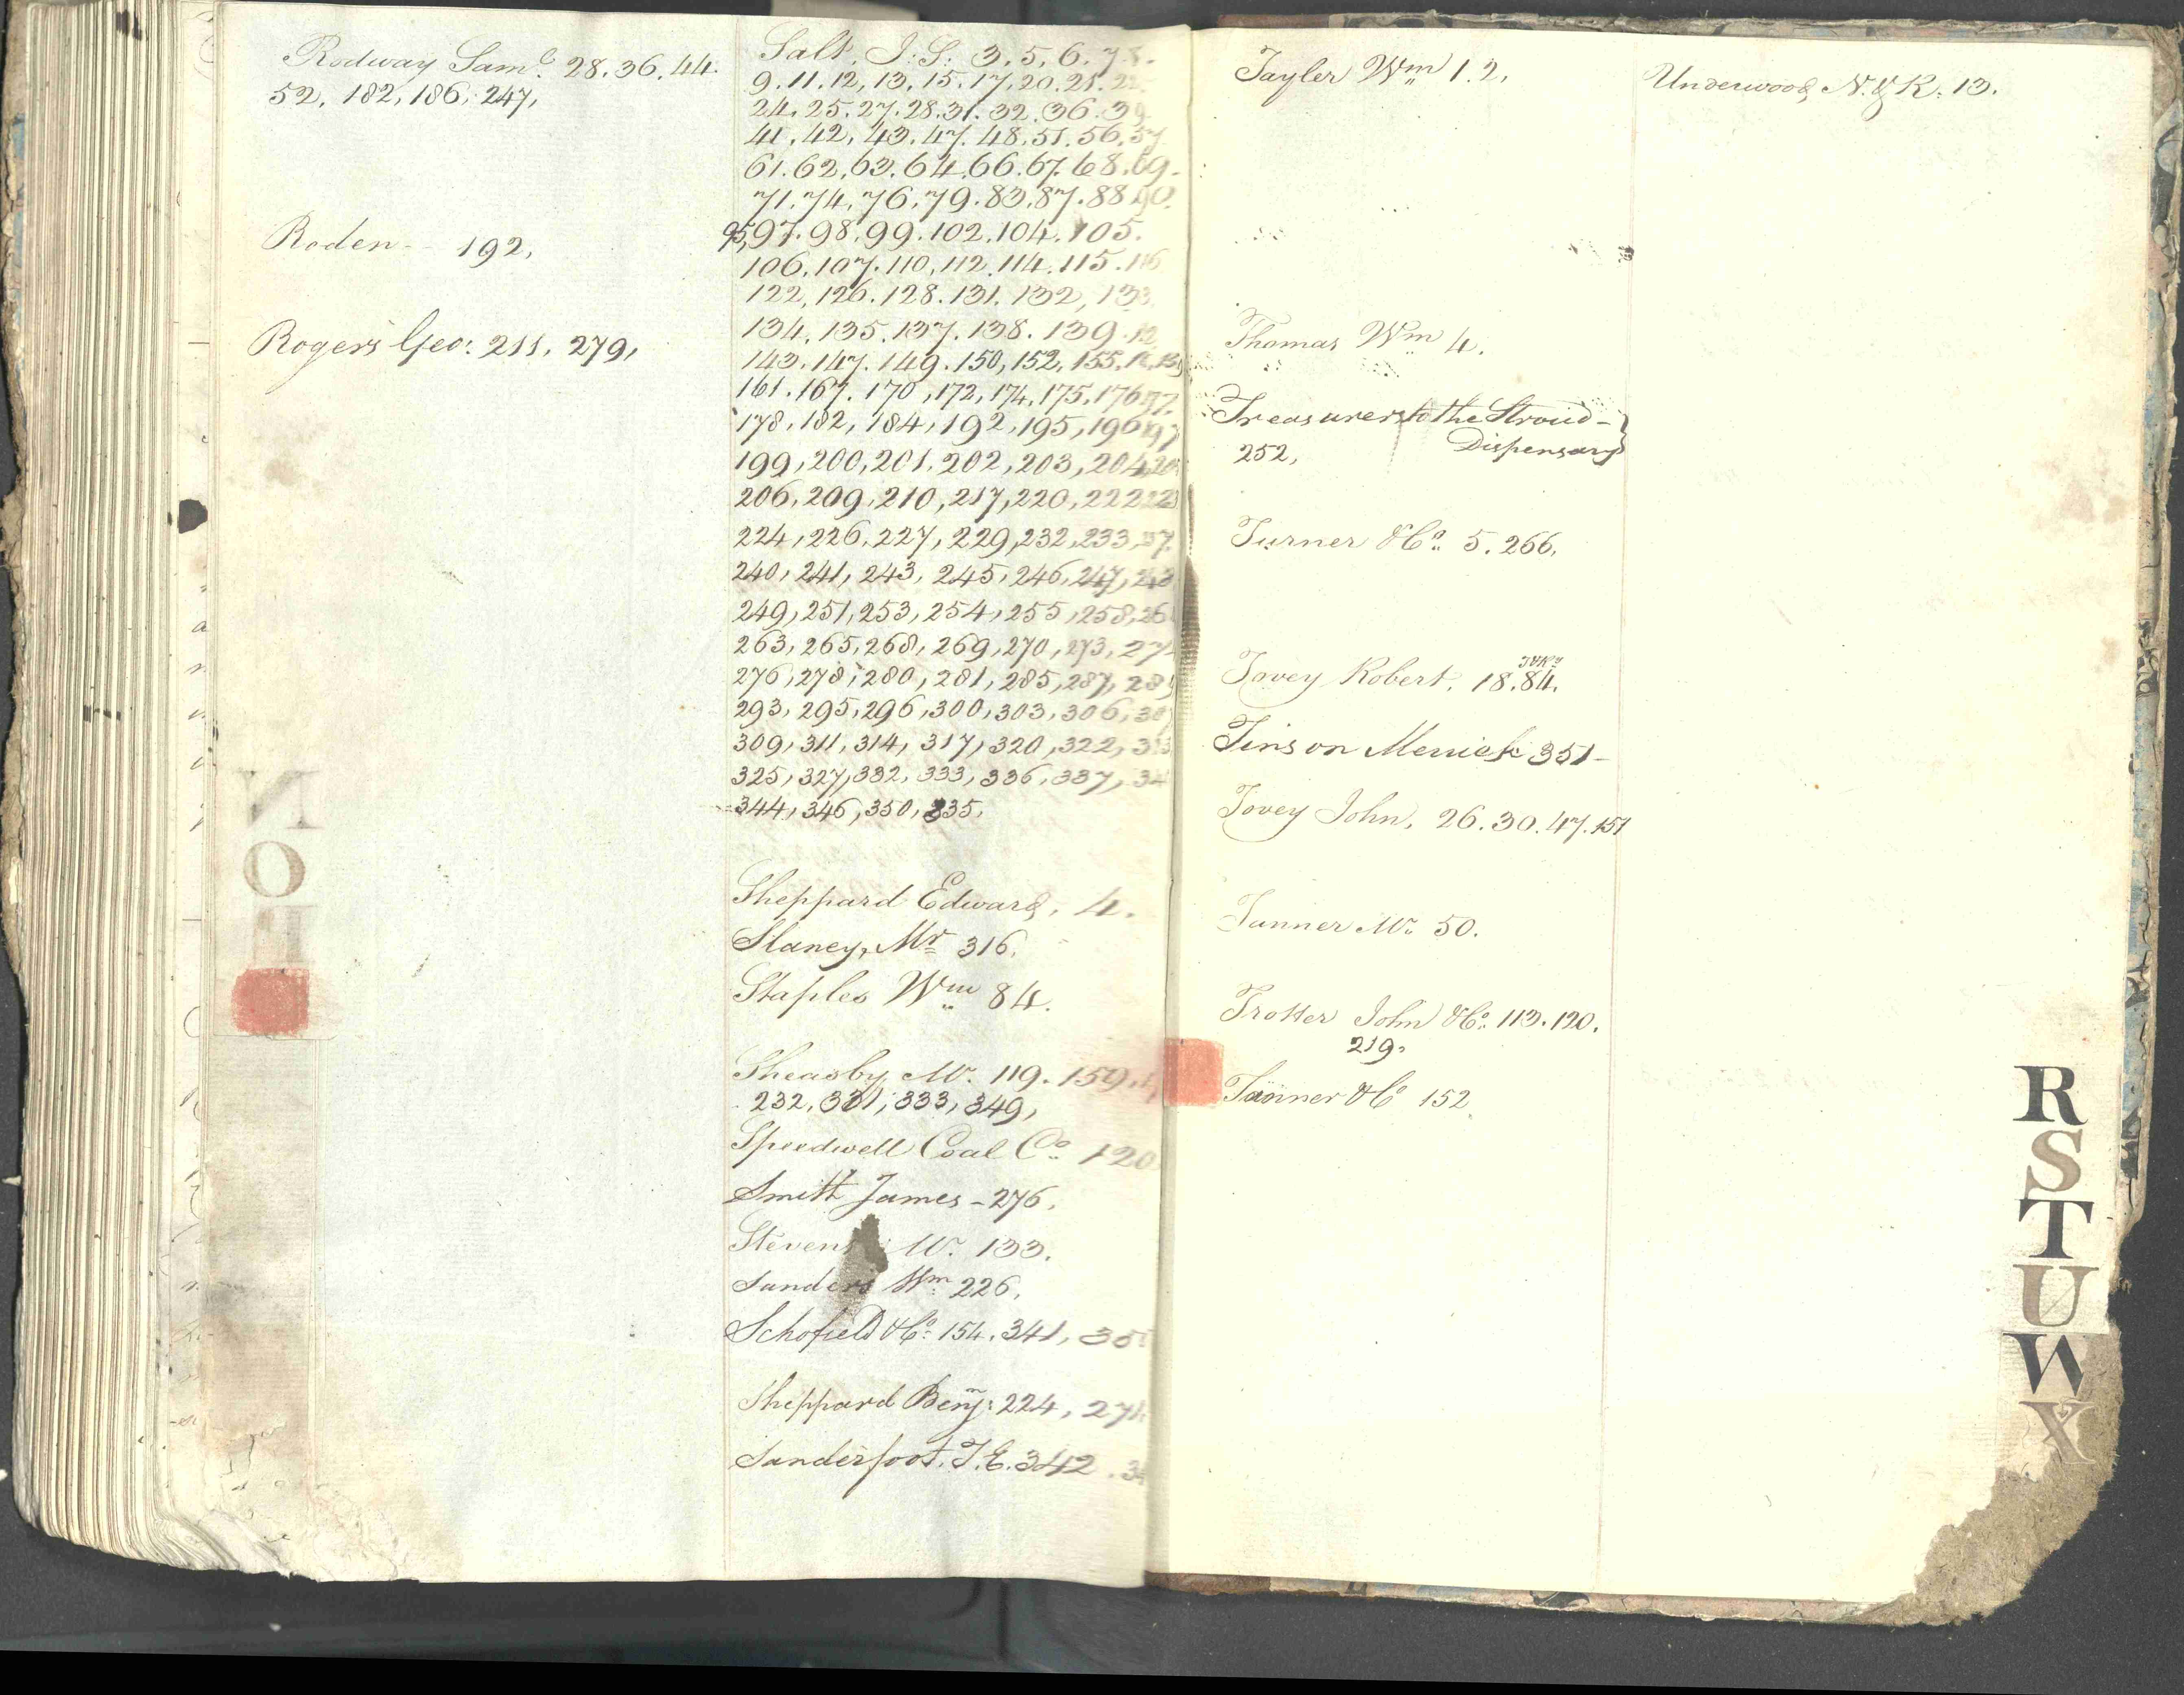 Rodway Saml. 28.36.44.
52, 182, 186, 247,
Roden - - 192,
Rogers Geo: 211, 279,
Salt, J: S: 3.5.6.7.8.
9.11.12,13.15.17,20.21.
24.25.27.28.31.32.36.39
41.42,43.47.48.51.56.57
61.62,63.64.66.67.68.69.
71.74,76,79.83.87.88.90.
95,97.98.99.102.104.105.
106.107.110,112.114.115.116
122,126.128.131.132,133
134.135.137.138.139.
143.147.149.150,152,155.
161.167.170,172,174,175,176,177.
178,182,184,192,195,196,197
199,200,201,202,203,204,205
206,209,210,217,220,222,223
224,226,227,229,232,233,237.
240,241,243,245,246,247,248
249,251,253,254,255,258,26
263,265,268,269,270,273,27
276,278,280,281,285,287,289
293,295,296,300,303,306,30
309,311,314,317,320,322,323
325,327,332,333,336,337,34
344,346,350,335.
Sheppard Edward, 4.
Slaney, Mr 316.
Staples Wm 84.
Sheasby Mr. 119.159.
232,331,333,349,
Speedwell Coal Co. 120
Smith James - 276.
Stevens Mr. 133.
Sanders Wm 226.
Schofield & Co: 154.341, 35
Sheppard Benjn: 224, 271.
Sandersfoot. T.E. 342. 34
Tayler Wm 1.2.
Thomas Wm 4.
Treasurers to the Stroud -
252, Dispensary
Turner & Co. 5.266.
Tovey Robert. 18.84.
Tinson Merrick 351-
Tovey John. 26.30.47.151
Tanner Mr. 50.
Trotter John & Co. 113.120.
219.
Tanner & Co 152
Underwood, N. & R. 13.
R
S
T
U
W
X